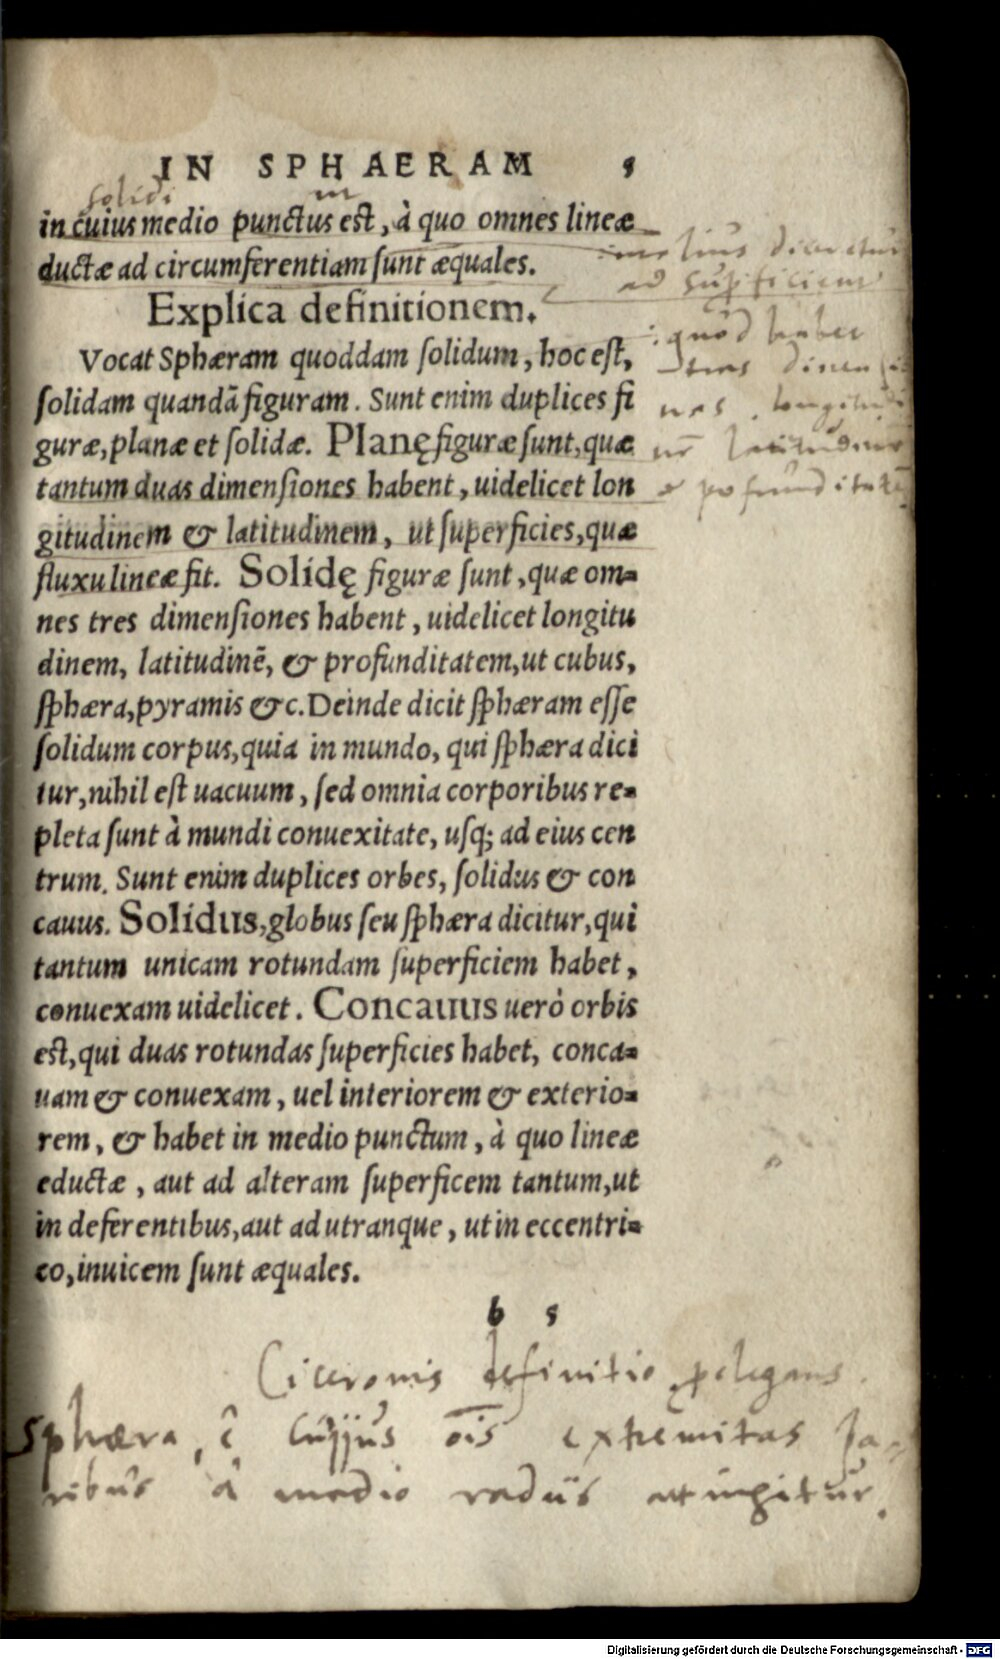 IN SPHAERAM 5
solidi m
in cuius medio punctus est, à quo omnes lineæ
ductæ ad circumferentiam sunt æquales.
melius diceretur
ad supficiem
Explica definitionem.
Vocat Sphæram quoddam solidum, hoc est,
solidam quandã figuram. Sunt enim duplices fi
guræ, planæ et solidæ. Planę figuræ sunt, quæ
tantum duas dimensiones habent, uidelicet lon
gitudinem & latitudinem, ut superficies, quæ
fluxu lineæ fit. Solidę figuræ sunt, quæ om=
nes tres dimensiones habent, uidelicet longitu
dinem, latitudinẽ, & profunditatem, ut cubus,
sphæra, pyramis &c. Deinde dicit sphæram esse
solidum corpus, quia in mundo, qui sphæra dici
tur, nihil est uacuum, sed omnia corporibus re=
pleta sunt à mundi conuexitate, usq; ad eius cen
trum. Sunt enim duplices orbes, solidus & con
cauus. Solidus, globus seu sphæra dicitur, qui
tantum unicam rotundam superficiem habet,
conuexam uidelicet. Concauus uerò orbis
est, qui duas rotundas superficies habet, conca=
uam & conuexam, uel interiorem & exterio=
rem, & habet in medio punctum, à quo lineæ
eductæ, aut ad alteram superficem tantum, ut
in deferentibus, aut ad utranque, ut in eccentri=
co, inuicem sunt æquales.
quod habet
tres dimensio
nes, longitudi
nẽ latitudinem
e pofunditatẽ
b 5
Ciceronis definitio pelegans.
Sphæra ẽ cuijus ois extremitas pa-
ribus a medio radiis attingitur.